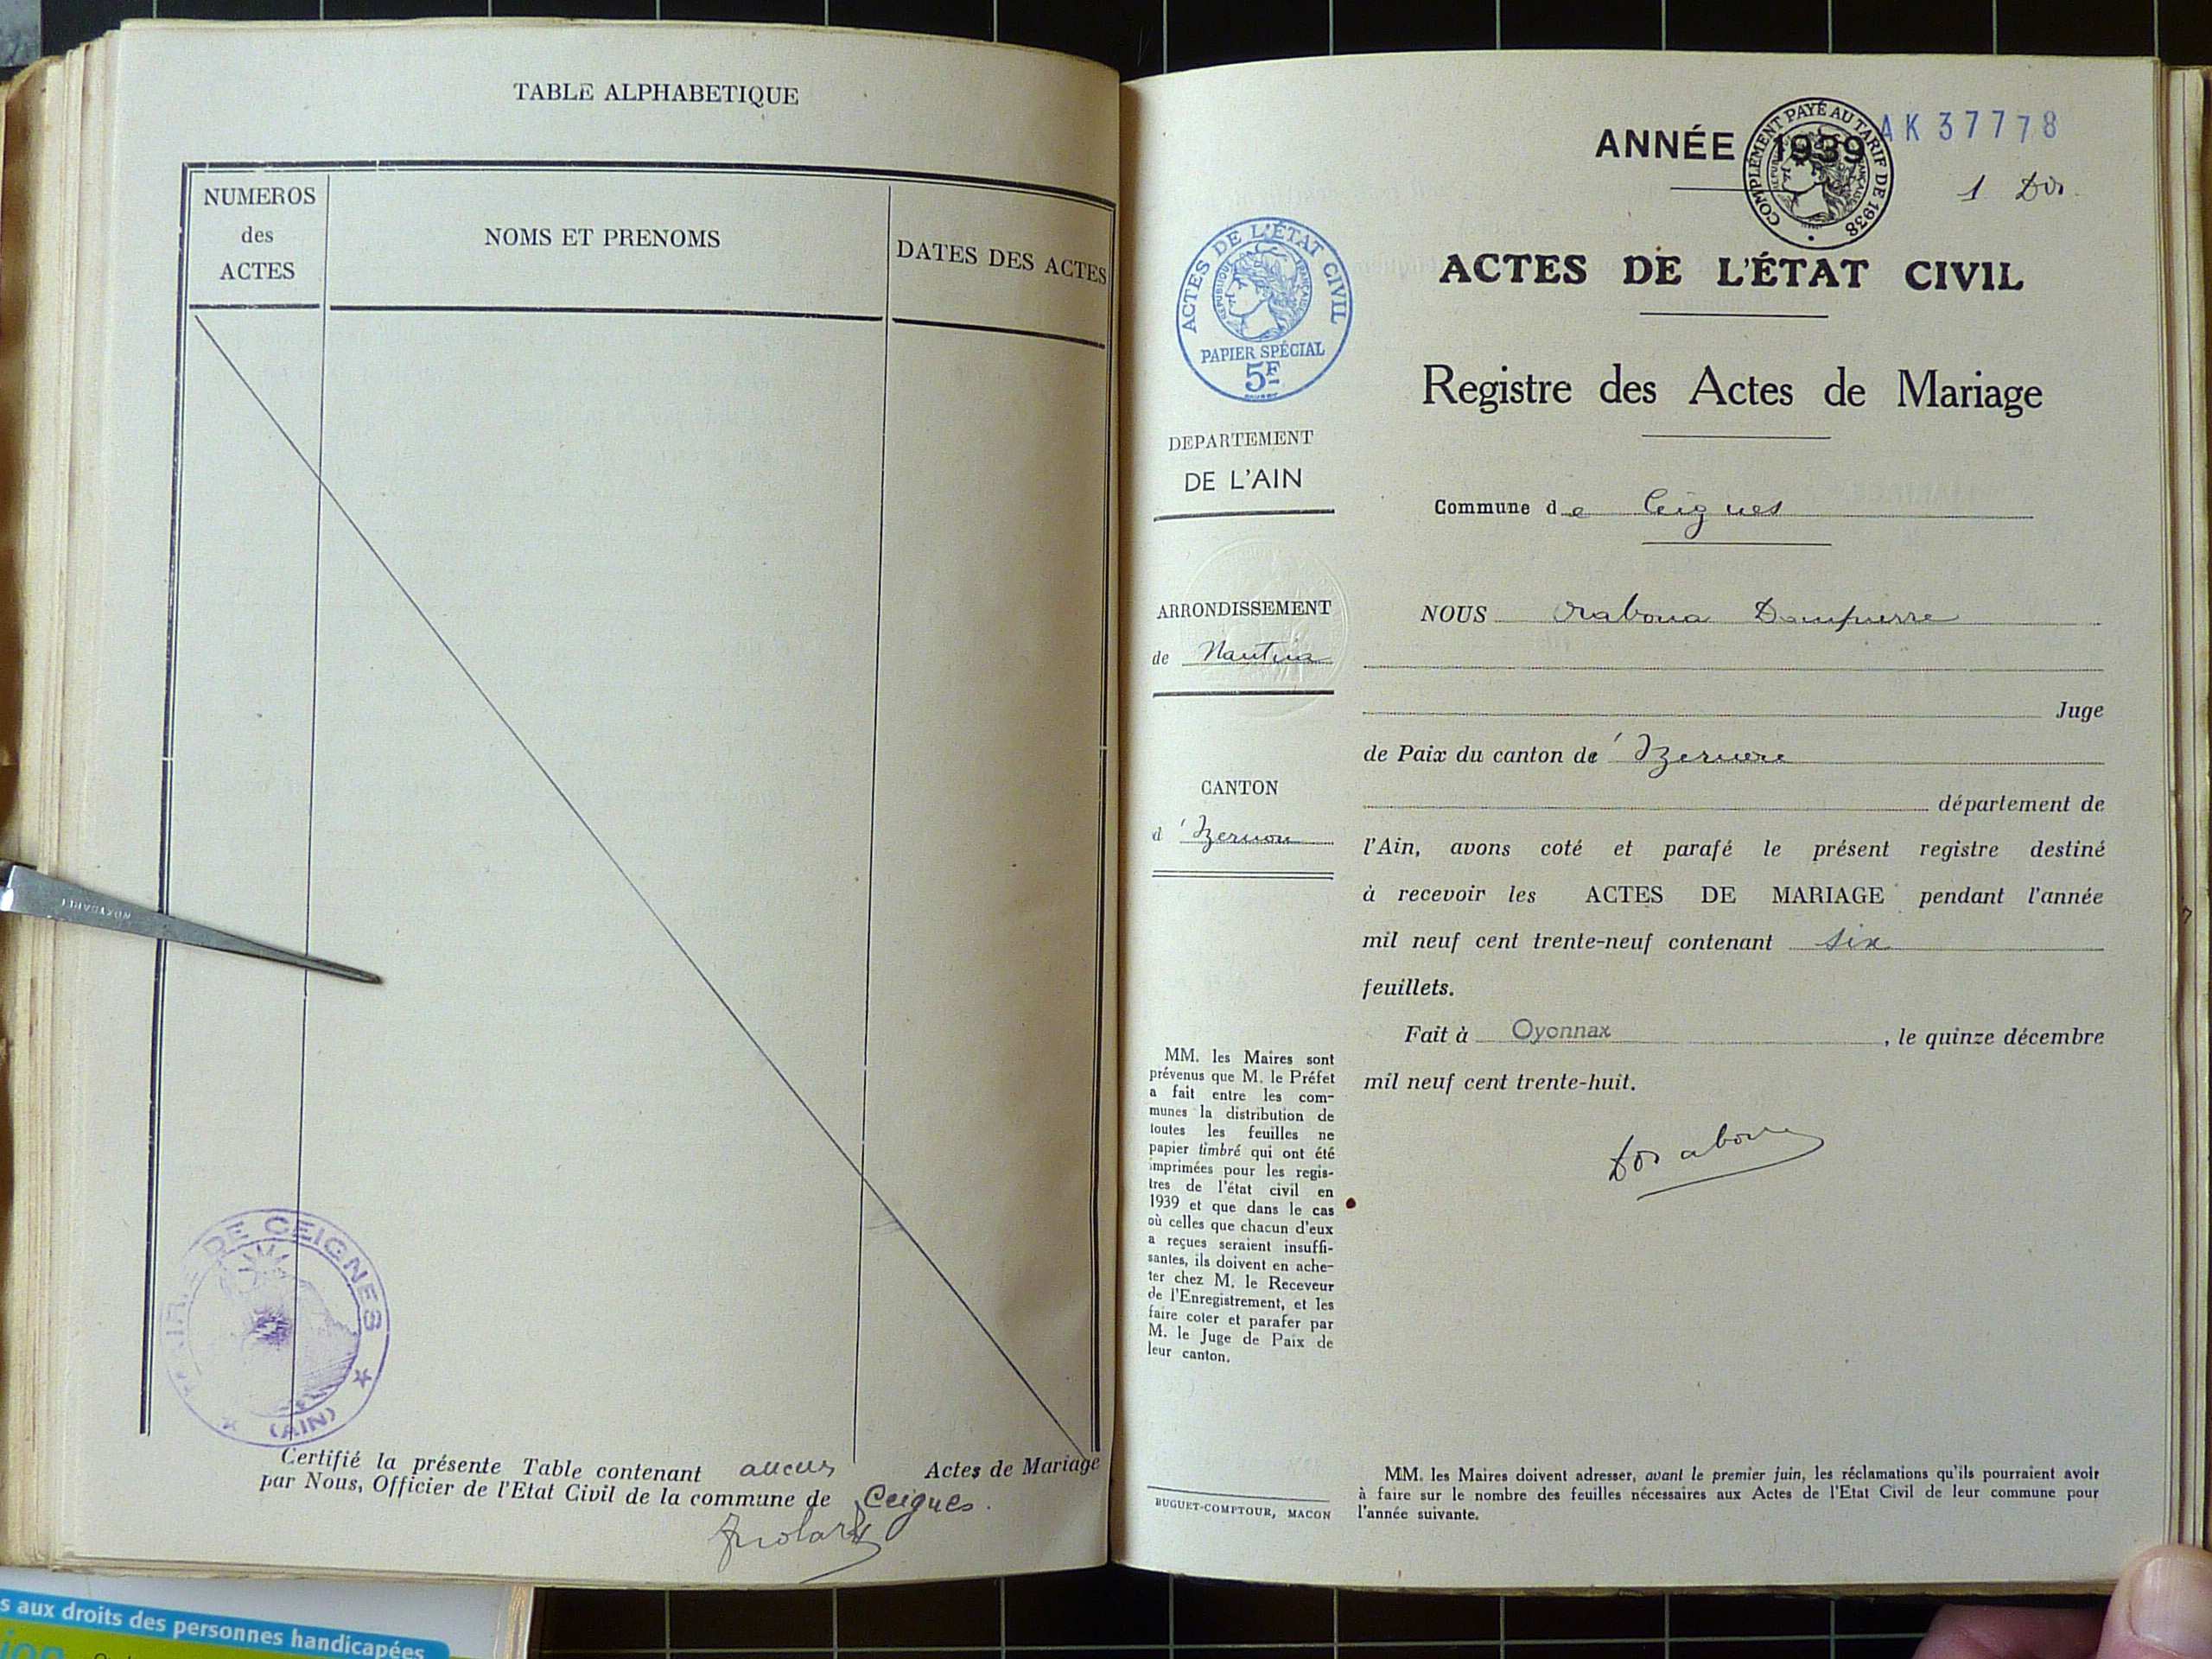 TABLE ALPHABETIQUE
NUMEROS
des
ACTES
NOMS ET PRENOMS
DATES DES ACTES
DE CEIGNES
(AIN)
Certifié la présente Table contenant aucun Actes de Mariage
par Nous, Officier de l'Etat Civil de la commune de Ceignes.
s aux droits des personnes handicapées
ANNÉE 1939
AK 37778
COMPLÉMENT PAYÉ AU TARIF DE 1938
1
ACTES DE L'ÉTAT CIVIL
RÉPUBLIQUE FRANÇAISE
PAPIER SPÉCIAL
5F
ACTES DE L'ÉTAT CIVIL
Registre des Actes de Mariage
DEPARTEMENT
DE L'AIN
ARRONDISSEMENT
de Nantua
CANTON
d'Izernore
MM. les Maires sont
prévenus que M. le Préfet
a fait entre les com-
munes la distribution de
toutes les feuilles ne
papier timbré qui ont été
imprimées pour les regis-
tres de l'état civil en
1939 et que dans le cas
où celles que chacun d'eux
a reçues seraient insuffi-
santes, ils doivent en ache-
ter chez M. le Receveur
de l'Enregistrement, et les
faire coter et parafer par
M. le Juge de Paix de
leur canton.
BUGUET-COMPTOUR, MACON
Commune de Ceignes
NOUS Dampierre
Juge
de Paix du canton de 'Izernore
département de
l'Ain, avons coté et parafé le présent registre destiné
à recevoir les ACTES DE MARIAGE pendant l'année
mil neuf cent trente-neuf contenant six
feuillets.
Fait à Oyonnax, le quinze décembre
mil neuf cent trente-huit.
MM. les Maires doivent adresser, avant le premier juin, les réclamations qu'ils pourraient avoir
à faire sur le nombre des feuilles nécessaires aux Actes de l'Etat Civil de leur commune pour
l'année suivante.